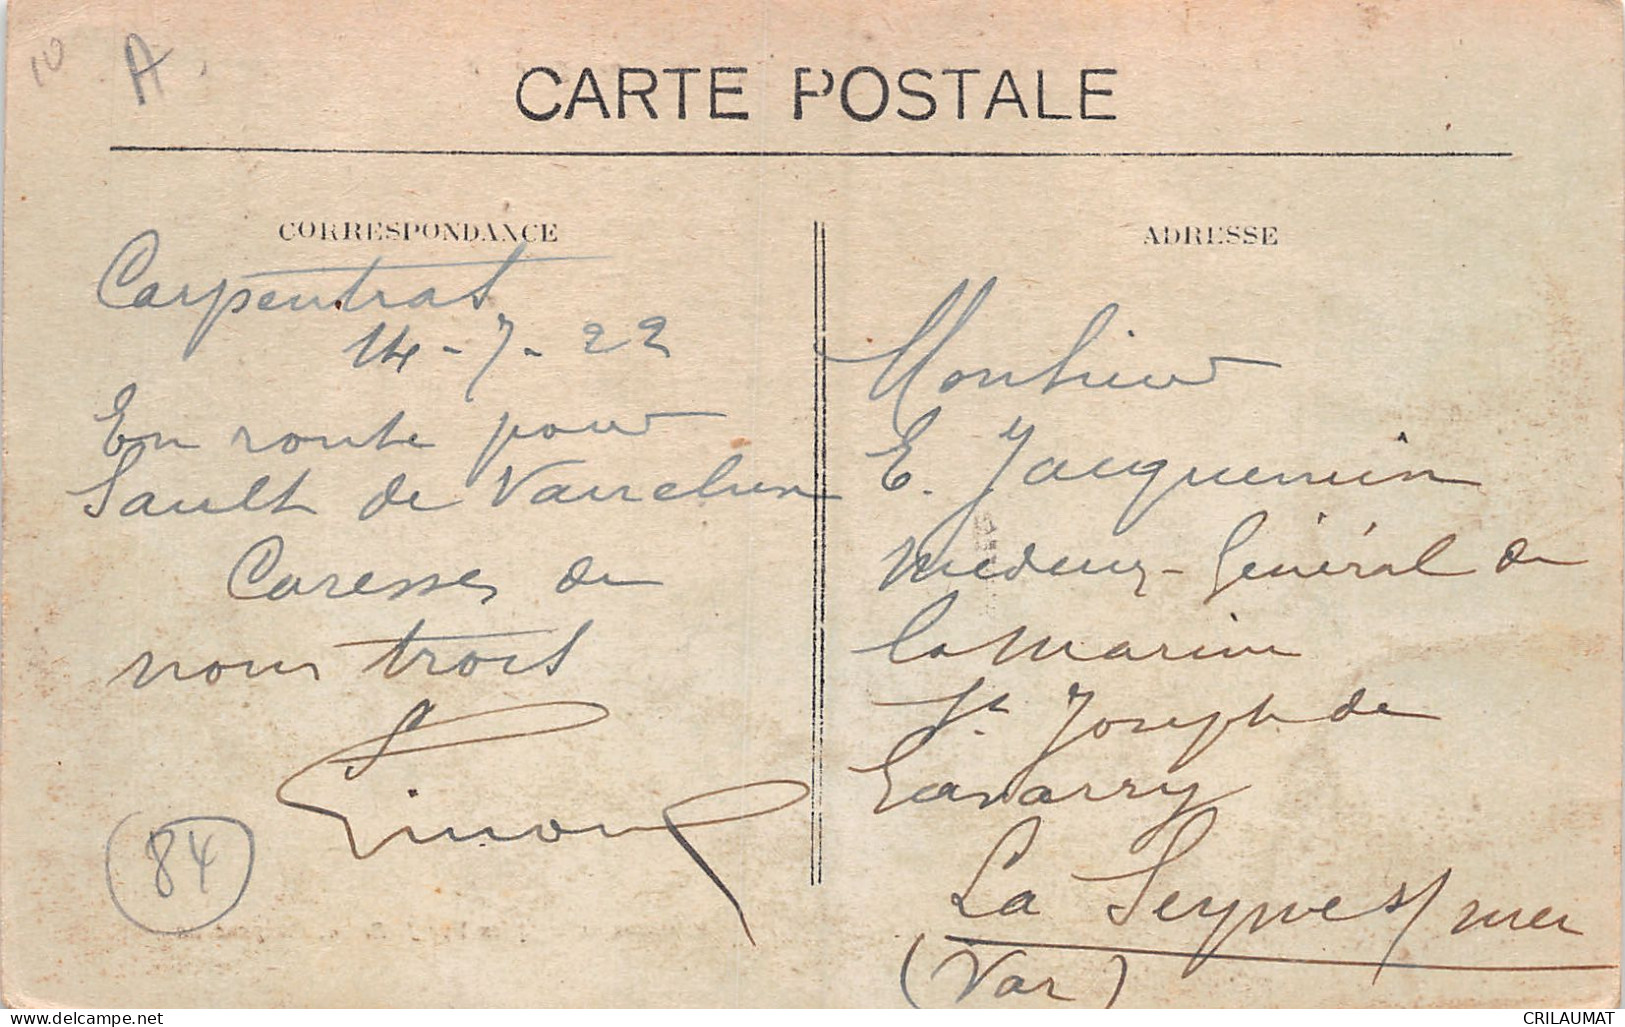 10 A
CARTE POSTALE
CORRESPONDANCE
Carpentras
14-7-22
En route pour
Sault de Vaucluse
Caresses de
nous trois
84
ADRESSE
Monsieur
E. Jacquemin
Médecin-Général de
la Marine
St. Joseph de
Gavarry
La Seyne s/mer
(Var)
CRILAUMAT